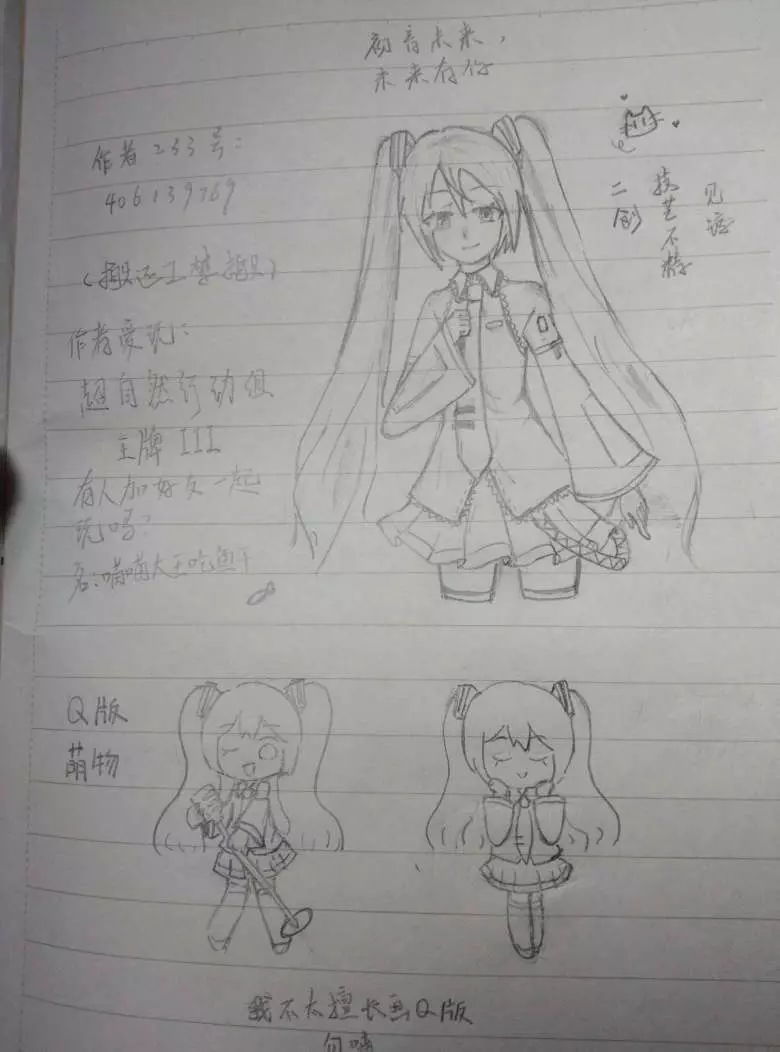 初音未来，
未来有你
作者233号：
406139769
(搬运工禁搬)
作者爱玩：
超自然行动组
王牌 III
有人加好友一起
玩吗？
名:喵喵大王吃鱼干
二创
技艺不精
见谅
Q版
萌物
我不太擅长画Q版
勿喷